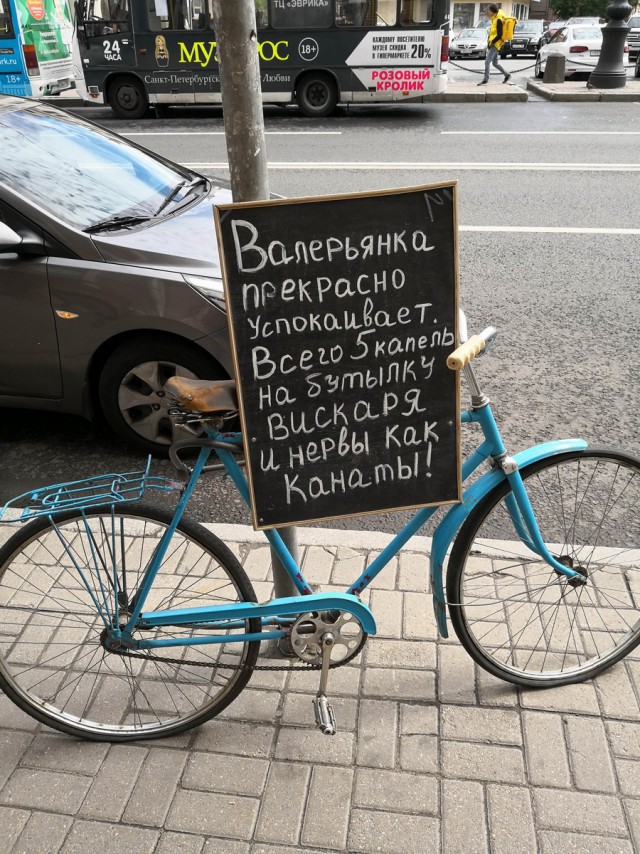 ТЦ «ЭВРИКА»
24
ЧАСА
18+
КАЖДОМУ ПОСЕТИТЕЛЮ
МУЗЕЯ СКИДКА
В ГИПЕРМАРКЕТЕ 20%
РОЗОВЫЙ
КРОЛИК
Санкт-Петербургский
Любви
18+
Валерьянка
прекрасно
успокаивает.
Всего 5 капель
на бутылку
вискаря
и нервы как
канаты!